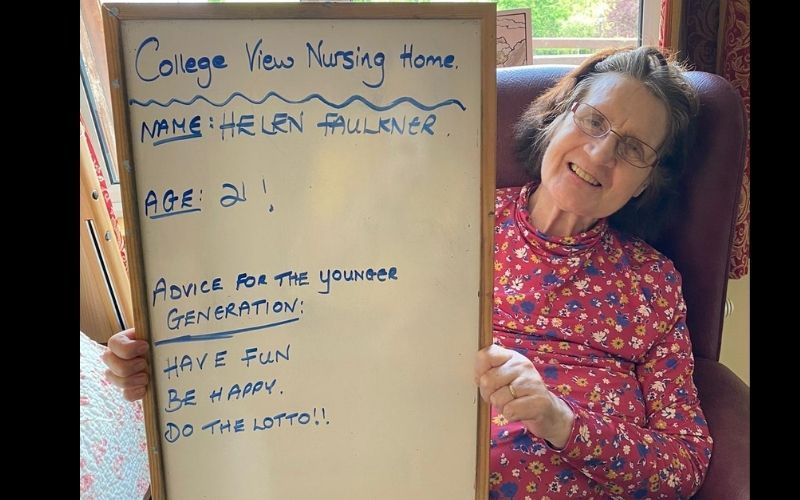 College View Nursing Home.
NAME: HELEN FAULKNER.
AGE: 21!
ADVICE FOR THE YOUNGER
GENERATION:
HAVE FUN
BE HAPPY.
DO THE LOTTO!!.